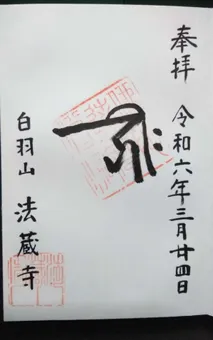 奉拝 令和六年三月廿四日
白羽山 法蔵寺